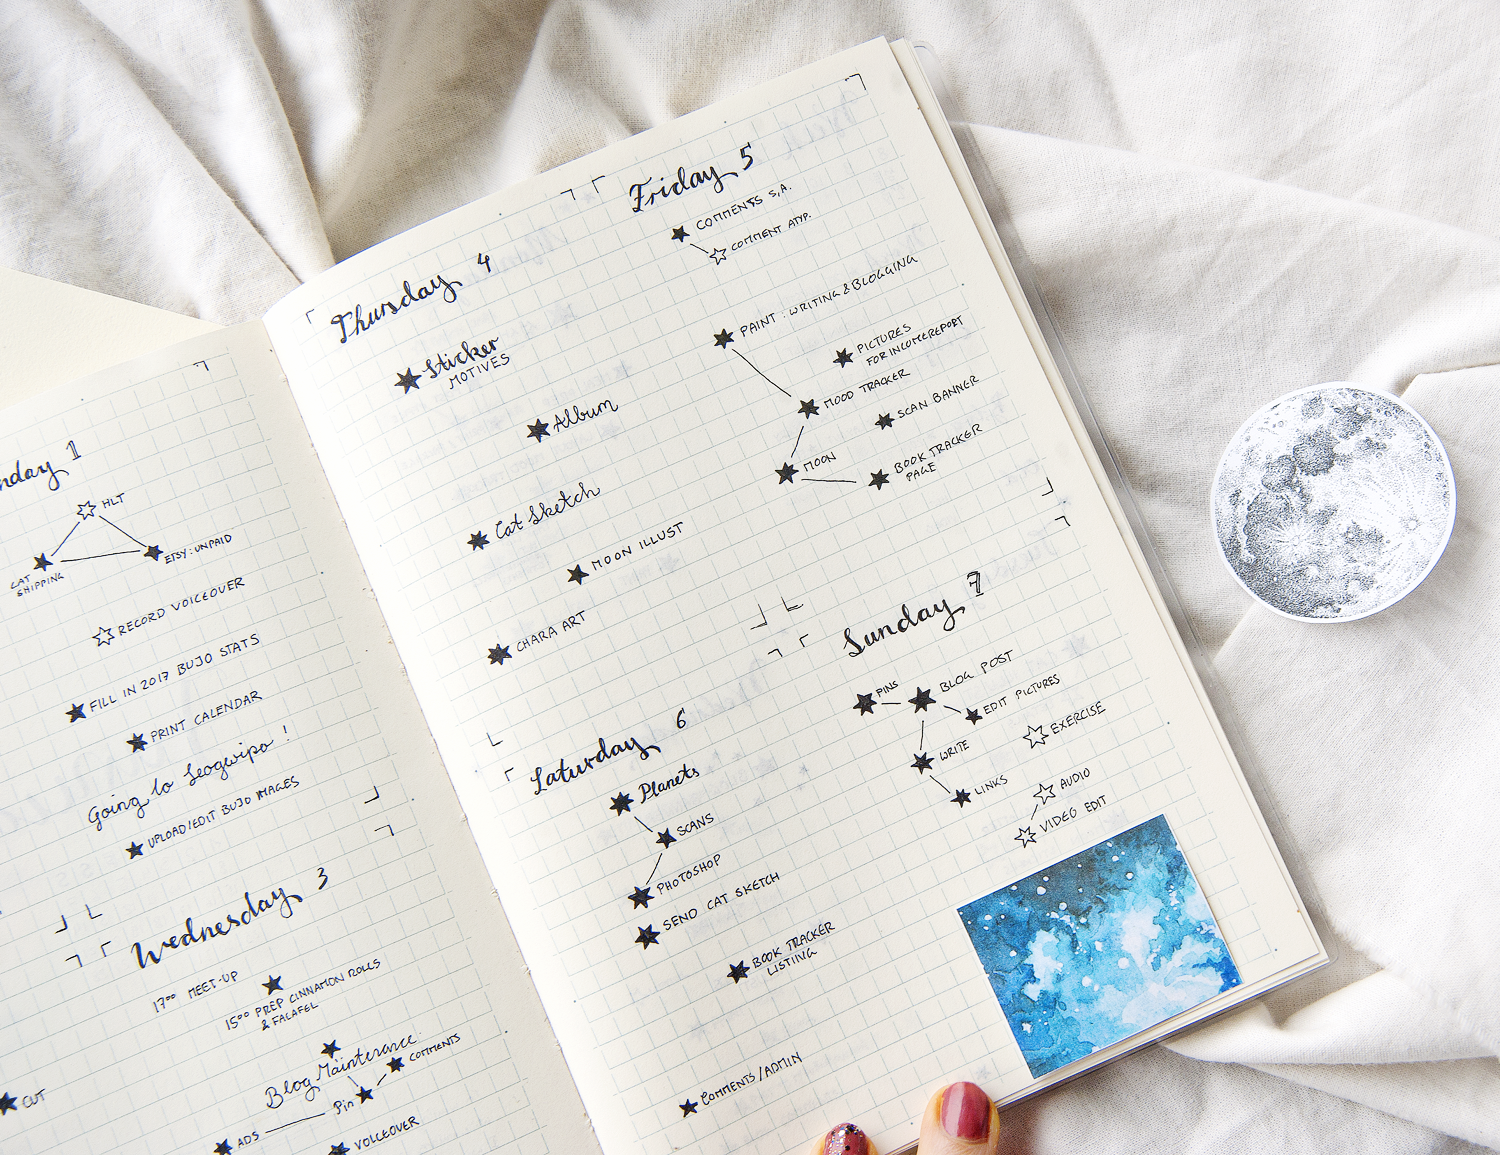 nday 1
HLT
CAT
SHIPPING
ETSY: UNPAID
RECORD VOICEOVER
FILL IN 2017 BUJO STATS
PRINT CALENDAR
Going to Seogwipo !
UPLOAD/EDIT BUJO IMAGES
Wednesday 3
17⁰⁰ MEET-UP
15⁰⁰ PREP CINNAMON ROLLS
& FALAFEL
Blog Maintenance
COMMENTS
Pin
ADS
VOICEOVER
CUT
Thursday 4
Sticker
MOTIVES
Album
Cat Sketch
MOON ILLUST
CHARA ART
Friday 5
COMMENTS S.A.
COMMENT ATYP.
PAINT : WRITING & BLOGGING
PICTURES
FOR INCOMEREPORT
MOOD TRACKER
SCAN BANNER
MOON
BOOK TRACKER
PAGE
Saturday 6
Planets
SCANS
PHOTOSHOP
SEND CAT SKETCH
BOOK TRACKER
LISTING
COMMENTS/ADMIN
Sunday 7
PINS
BLOG POST
EDIT PICTURES
EXERCISE
WRITE
LINKS
AUDIO
VIDEO EDIT